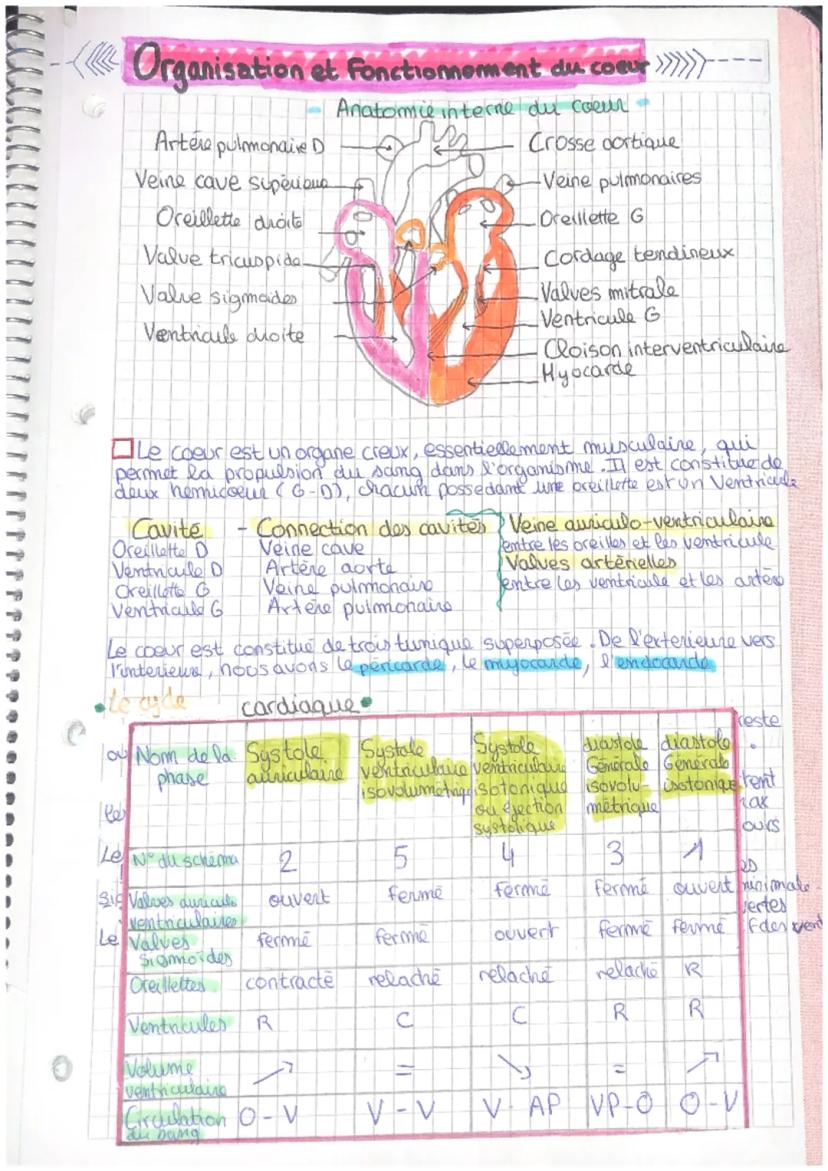 Organisation et Fonctionnement du coeur
Anatomie interne du coeur
Artère pulmonaire D
Crosse aortique
Veine cave supérieure
Veine pulmonaires
Oreillette droite
Oreillette G
Valve tricuspide
Cordage tendineux
Valve sigmoides
Valves mitrale
Ventricule G
Ventricule droite
Cloison interventriculaire
Myocarde
Le coeur est un organe creux, essentiellement musculaire, qui
permet la propulsion du sang dans l'organisme. Il est constitué de
deux hémicoeur (G-D), chacun possedant une oreillette est un Ventricule
Cavité - Connection des cavités
Oreillette D Veine cave
Ventricule D Artère aorte
Oreillette G Veine pulmonaire
Ventricule G Artère pulmonaire
Veine auriculo-ventriculaire
entre les oreilles et les ventricule
Valves artérielles
entre les ventricule et les artère
Le coeur est constitué de trois tunique superposée. De l'exterieure vers
l'interieure, nous avons le péricarde, le myocarde, l'endocarde
Le cycle cardiaque
Nom de la phase
Systole auriculaire
Systole ventriculaire isovolumétrique
Systole ventriculaire isotonique ou éjection systolique
diastole Générale isovolumétrique
diastole Générale isotonique
N° du schéma 2 5 4 3 1
Valves auriculo ventriculaires ouvert fermé fermé fermé ouvert
Valves sigmoïdes fermé fermé ouvert fermé fermé
Oreillettes contracté relaché relaché relaché R
Ventricules R C C R R
Volume ventriculaire ↗ = ↘ = ↗
Circulation du sang O-V V-V V-AP VP-O O-V
reste
ou
Le
Le
minimale